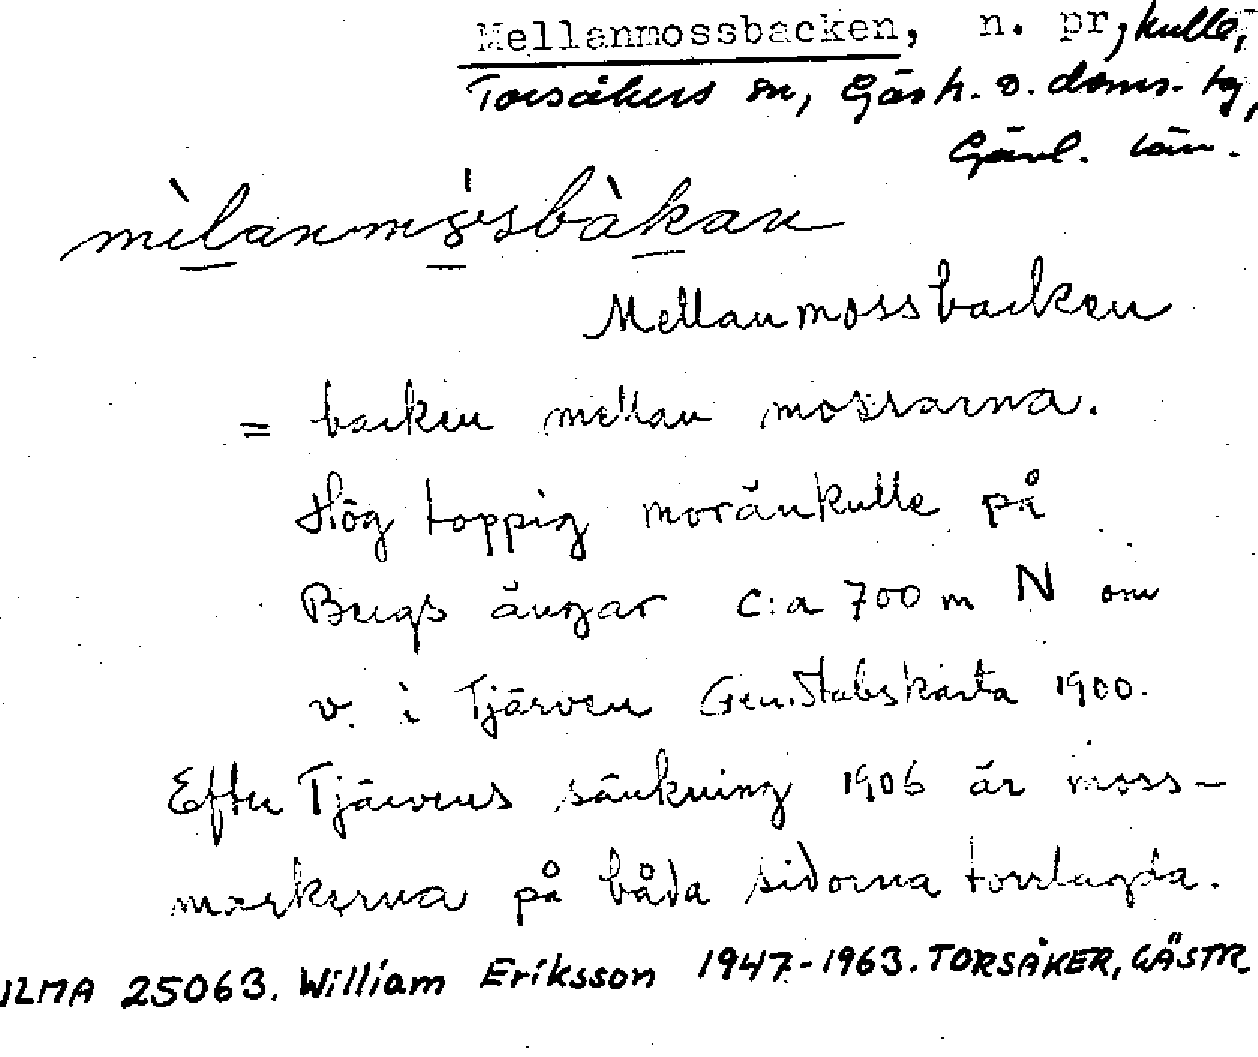 Mellanmossbacken, n. pr, kulle,
Torsåkers sn, Gästr. ö. doms. tg,
Gävl. län.
mèlanmósbàkan
Mellanmossbacken
= backen mellan mossarna.
Hög toppig moränkulle på
Bugs ängar c:a 700 m N om
v. i Tjärven Gen.stabskarta 1900.
Efter Tjärvens sänkning 1906 är moss-
markerna på båda sidorna torrlagda.
ULMA 25063. William Eriksson 1947-1963. TORSÅKER, GÄSTR.